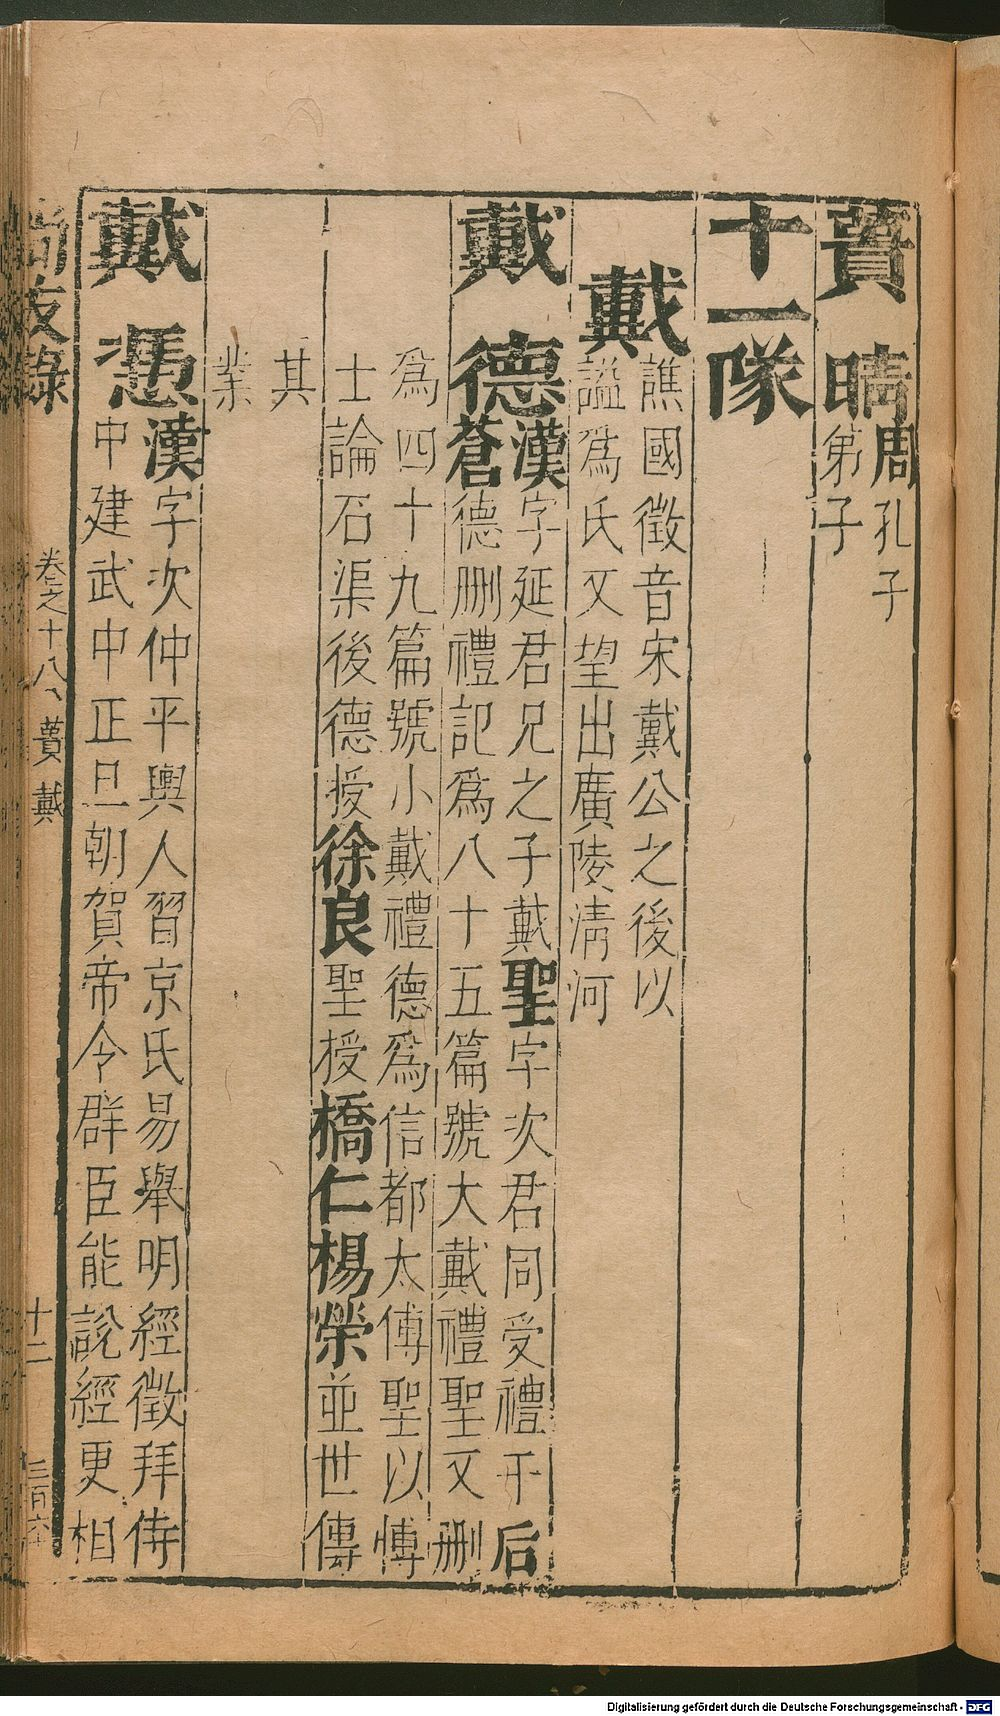 蕢晴周孔子
弟子
十一隊
戴譙國徵音宋戴公之後以
謚爲氏又望出廣陵淸河
戴德漢字延君兄之子戴聖字次君同受禮于后
蒼德刪禮記爲八十五篇號大戴禮聖又刪
爲四十九篇號小戴禮德爲信都太傅聖以博
士論石渠後德授徐良聖授橋仁楊榮並世傳
其
業
戴憑漢字次仲平輿人習京氏易舉明經徵拜侍
中建武中正旦朝賀帝令群臣能說經更相
尚友錄
卷之十八
蕢戴
十二
三百六
Digitalisierung gefördert durch die Deutsche Forschungsgemeinschaft - DFG